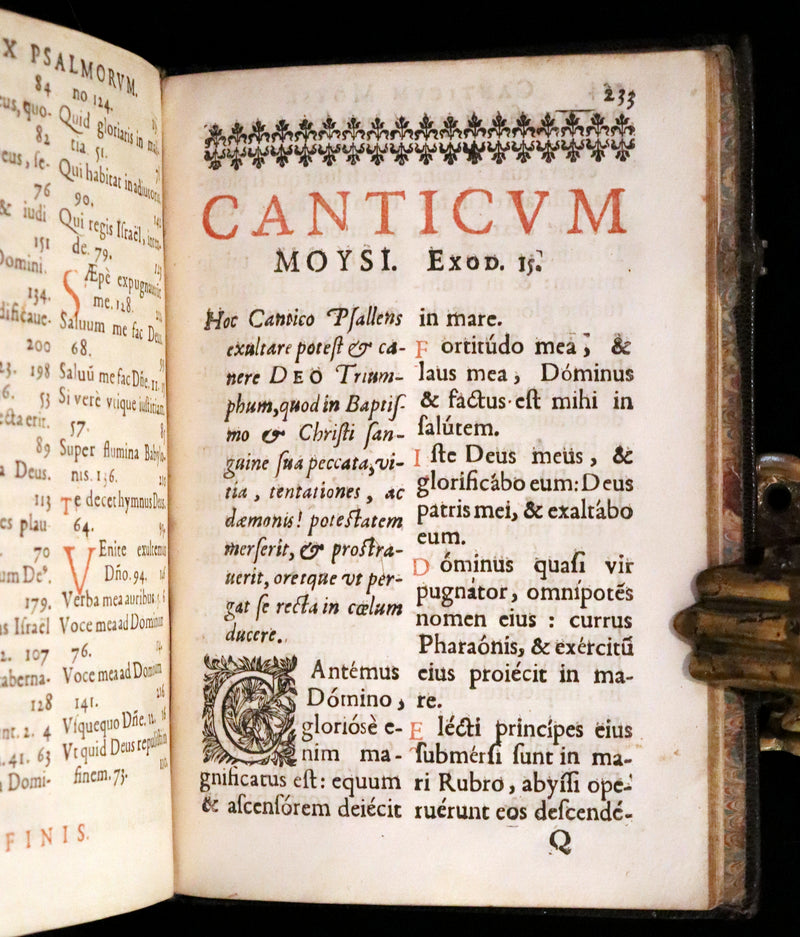 X PSALMORVM.
84
cus, quo-
82
eus, se-
76
& iudi
151
Domini.
134.
dificaue-
200
23. 198
6. 53
ecta erit.
89
a Deus.
113
es plau
70
um Deꝰ.
179.
us Israël
2. 107
aberna-
128
nt. 2. 4
. 41. 63
n Domi-
FINIS.
no 124.
Quid gloriaris in
tia. 51.
Qui habitat in adiutorio
90.
Qui regis Israël,
de. 79.
SÆpè expugnauerūt
me. 128.
Saluum me fac Deus
68.
Saluū me fac Dñe. 11.
Si verè vtique iustitiam
57.
Super flumina Babylo-
nis. 136.
Te decet hymnus Deus.
64.
VEnite exultemus
Dño. 94.
Verba mea auribus. 5.
Voce mea ad Dominum
76.
Voce mea ad Dominum
141.
Vsquequo Dñe. 12.
Vt quid Deus repulisti in
finem. 73.
233
CANTICVM
MOYSI. EXOD. 15.
Hoc Cantico Psallens
exultare potest & ca-
nere DEO Trium-
phum, quod in Baptis-
mo & Christi san-
guine sua peccata, vi-
tia, tentationes, ac
dæmonis! potestatem
merserit, & prostra-
uerit, oretque vt per-
gat se recta in cœlum
ducere.
CAntémus
Dómino,
gloriósè e-
nim ma-
gnificatus est: equum
& ascensórem deiécit
in mare.
Fortitúdo mea, &
laus mea, Dóminus
& factus est mihi in
salútem.
Iste Deus meus, &
glorificábo eum: Deus
patris mei, & exaltábo
eum.
Dóminus quasi vir
pugnátor, omnipotēs
nomen eius : currus
Pharaónis, & exércitū
eius proiécit in ma-
re.
Elécti príncipes eius
submérsi sunt in ma-
ri Rubro, abyssi ope-
ruérunt eos descendé-
Q